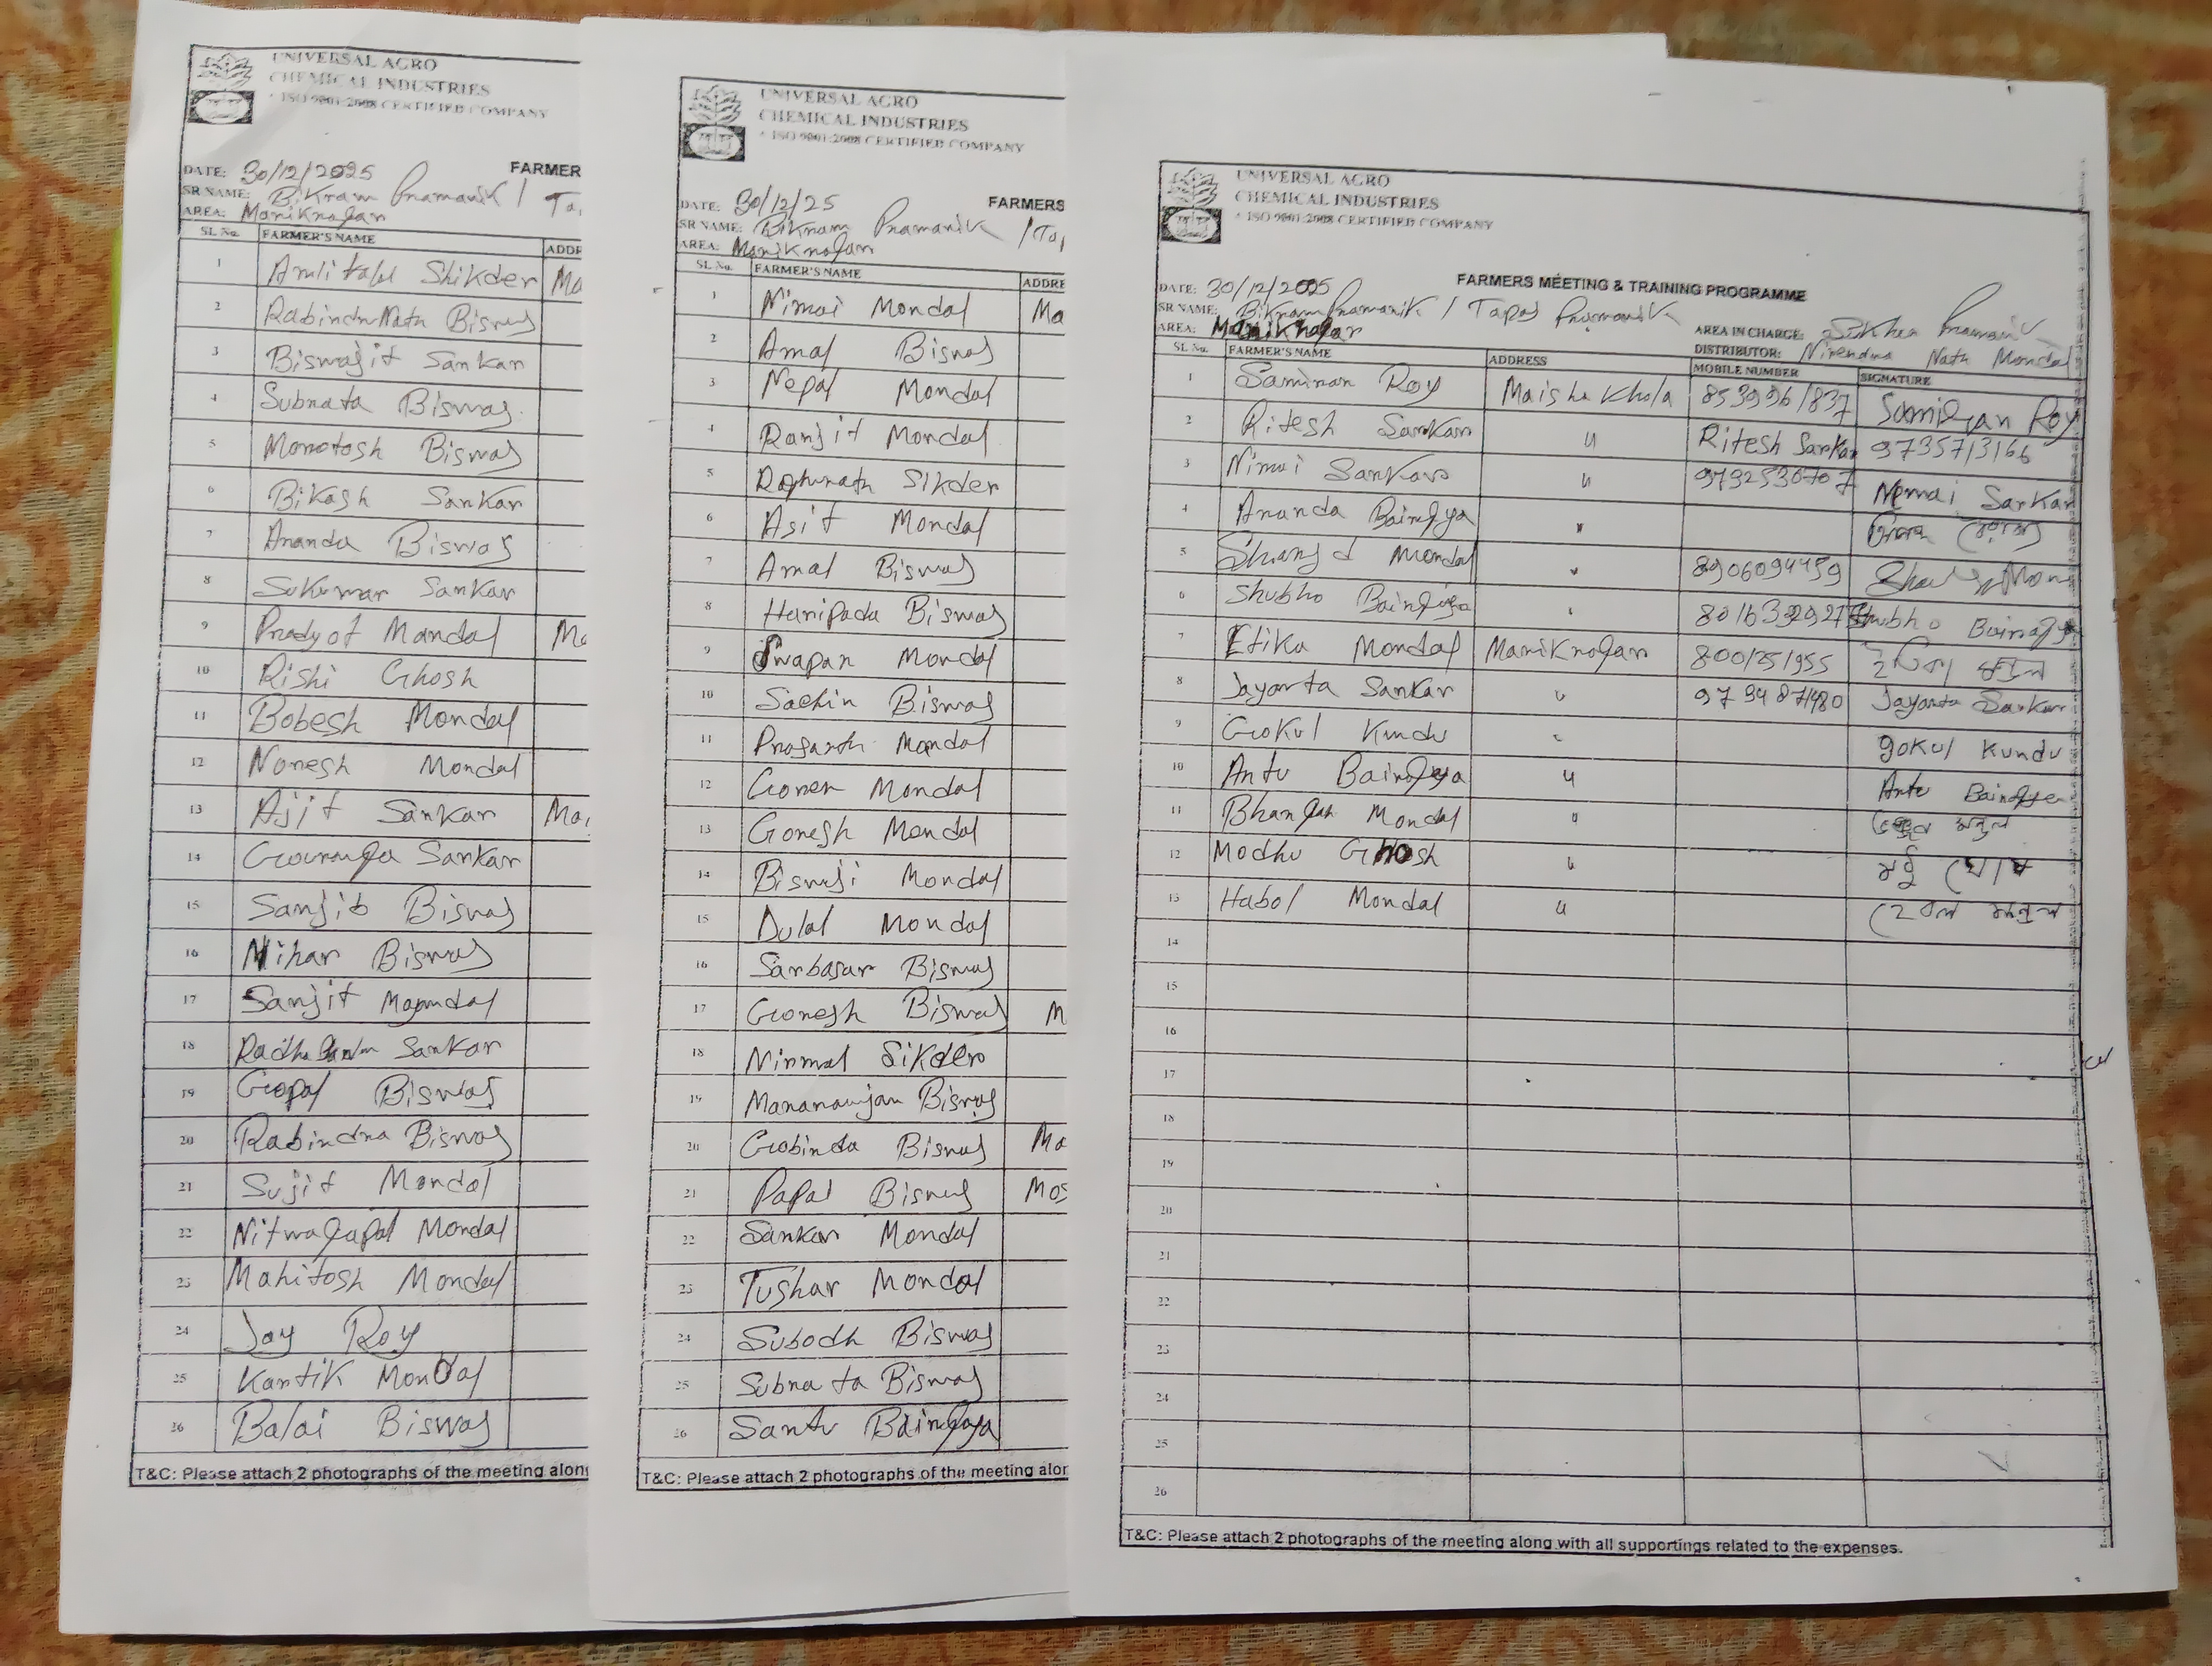 UNIVERSAL AGRO
CHEMICAL INDUSTRIES
* ISO 9001:2008 CERTIFIED COMPANY
FARMER
DATE: 30/12/2025
SR NAME: Bikram Pramanik /
AREA: Maniknagar
SL No. FARMER'S NAME ADDR
1 Shikder Ma
2 Rabindra Nath Biswas
3 Biswajit Sarkar
4 Subrata Biswas
5 Monotosh Biswas
6 Bikash Sarkar
7 Ananda Biswas
8 Sukumar Sarkar
9 Pradyot Mandal Ma
10 Rishi Ghosh
11 Bobesh Mondal
12 Noresh Mondal
13 Ajit Sarkar Ma
14 Gouranga Sarkar
15 Sanjib Biswas
16 Nihar Biswas
17 Sanjit
18 Radha Sarkar
19 Gopal Biswas
20 Rabindra Biswas
21 Sujit Mondal
22 Mondal
23 Mahitosh Mondal
24 Joy Roy
25 Kartik Mondal
26 Balai Biswas
T&C: Please attach 2 photographs of the meeting along
UNIVERSAL AGRO
CHEMICAL INDUSTRIES
* ISO 9001:2008 CERTIFIED COMPANY
FARMERS
DATE: 30/12/25
SR NAME: Bikram Pramanik / Ta
AREA: Maniknagar
SL No. FARMER'S NAME ADDRE
1 Nimai Mondal Ma
2 Amal Biswas
3 Nepal Mondal
4 Ranjit Mondal
5 Raghunath Sikder
6 Asit Mondal
7 Amal Biswas
8 Haripada Biswas
9 Swapan Mondal
10 Sachin Biswas
11 Mondal
12 Mondal
13 Gonesh Mondal
14 Mondal
15 Dulal Mondal
16 Biswas
17 Gonesh Biswas M
18 Nirmal Sikder
19 Manaranjan Biswas
20 Gobinda Biswas Ma
21 Papai Biswas Mos
22 Sankar Mondal
23 Tushar Mondal
24 Subodh Biswas
25 Subrata Biswas
26 Santu Bairagya
T&C: Please attach 2 photographs of the meeting alon
UNIVERSAL AGRO
CHEMICAL INDUSTRIES
* ISO 9001:2008 CERTIFIED COMPANY
FARMERS MEETING & TRAINING PROGRAMME
DATE: 30/12/2025
SR NAME: Bikram Pramanik / Tapas Pramanik
AREA IN CHARGE: Pramanik
AREA: Maniknagar
DISTRIBUTOR: Nirendra Nath Mondal
SL No. FARMER'S NAME ADDRESS MOBILE NUMBER SIGNATURE
1 Samiran Roy Maisha Khola 8539961837 Samiran Roy
2 Ritesh Sarkar " Ritesh Sarkar 9735713166
3 Nimai Sarkar " 9732536707 Nemai Sarkar
4 Ananda Bairagya "
5 Mondal " 8906094459
6 Shubho Bairagya " Shubho Bairagya
7 Etika Mondal Maniknagar 8001251955
8 Jayanta Sarkar " Jayanta Sarkar
9 Gokul Kundu " gokul kundu
10 Antu Bairagya " Antu Bairagya
11 Mondal "
12 Modhu Ghosh " মধু ঘোষ
13 Habol Mondal "
14
15
16
17
18
19
20
21
22
23
24
25
26
T&C: Please attach 2 photographs of the meeting along with all supportings related to the expenses.